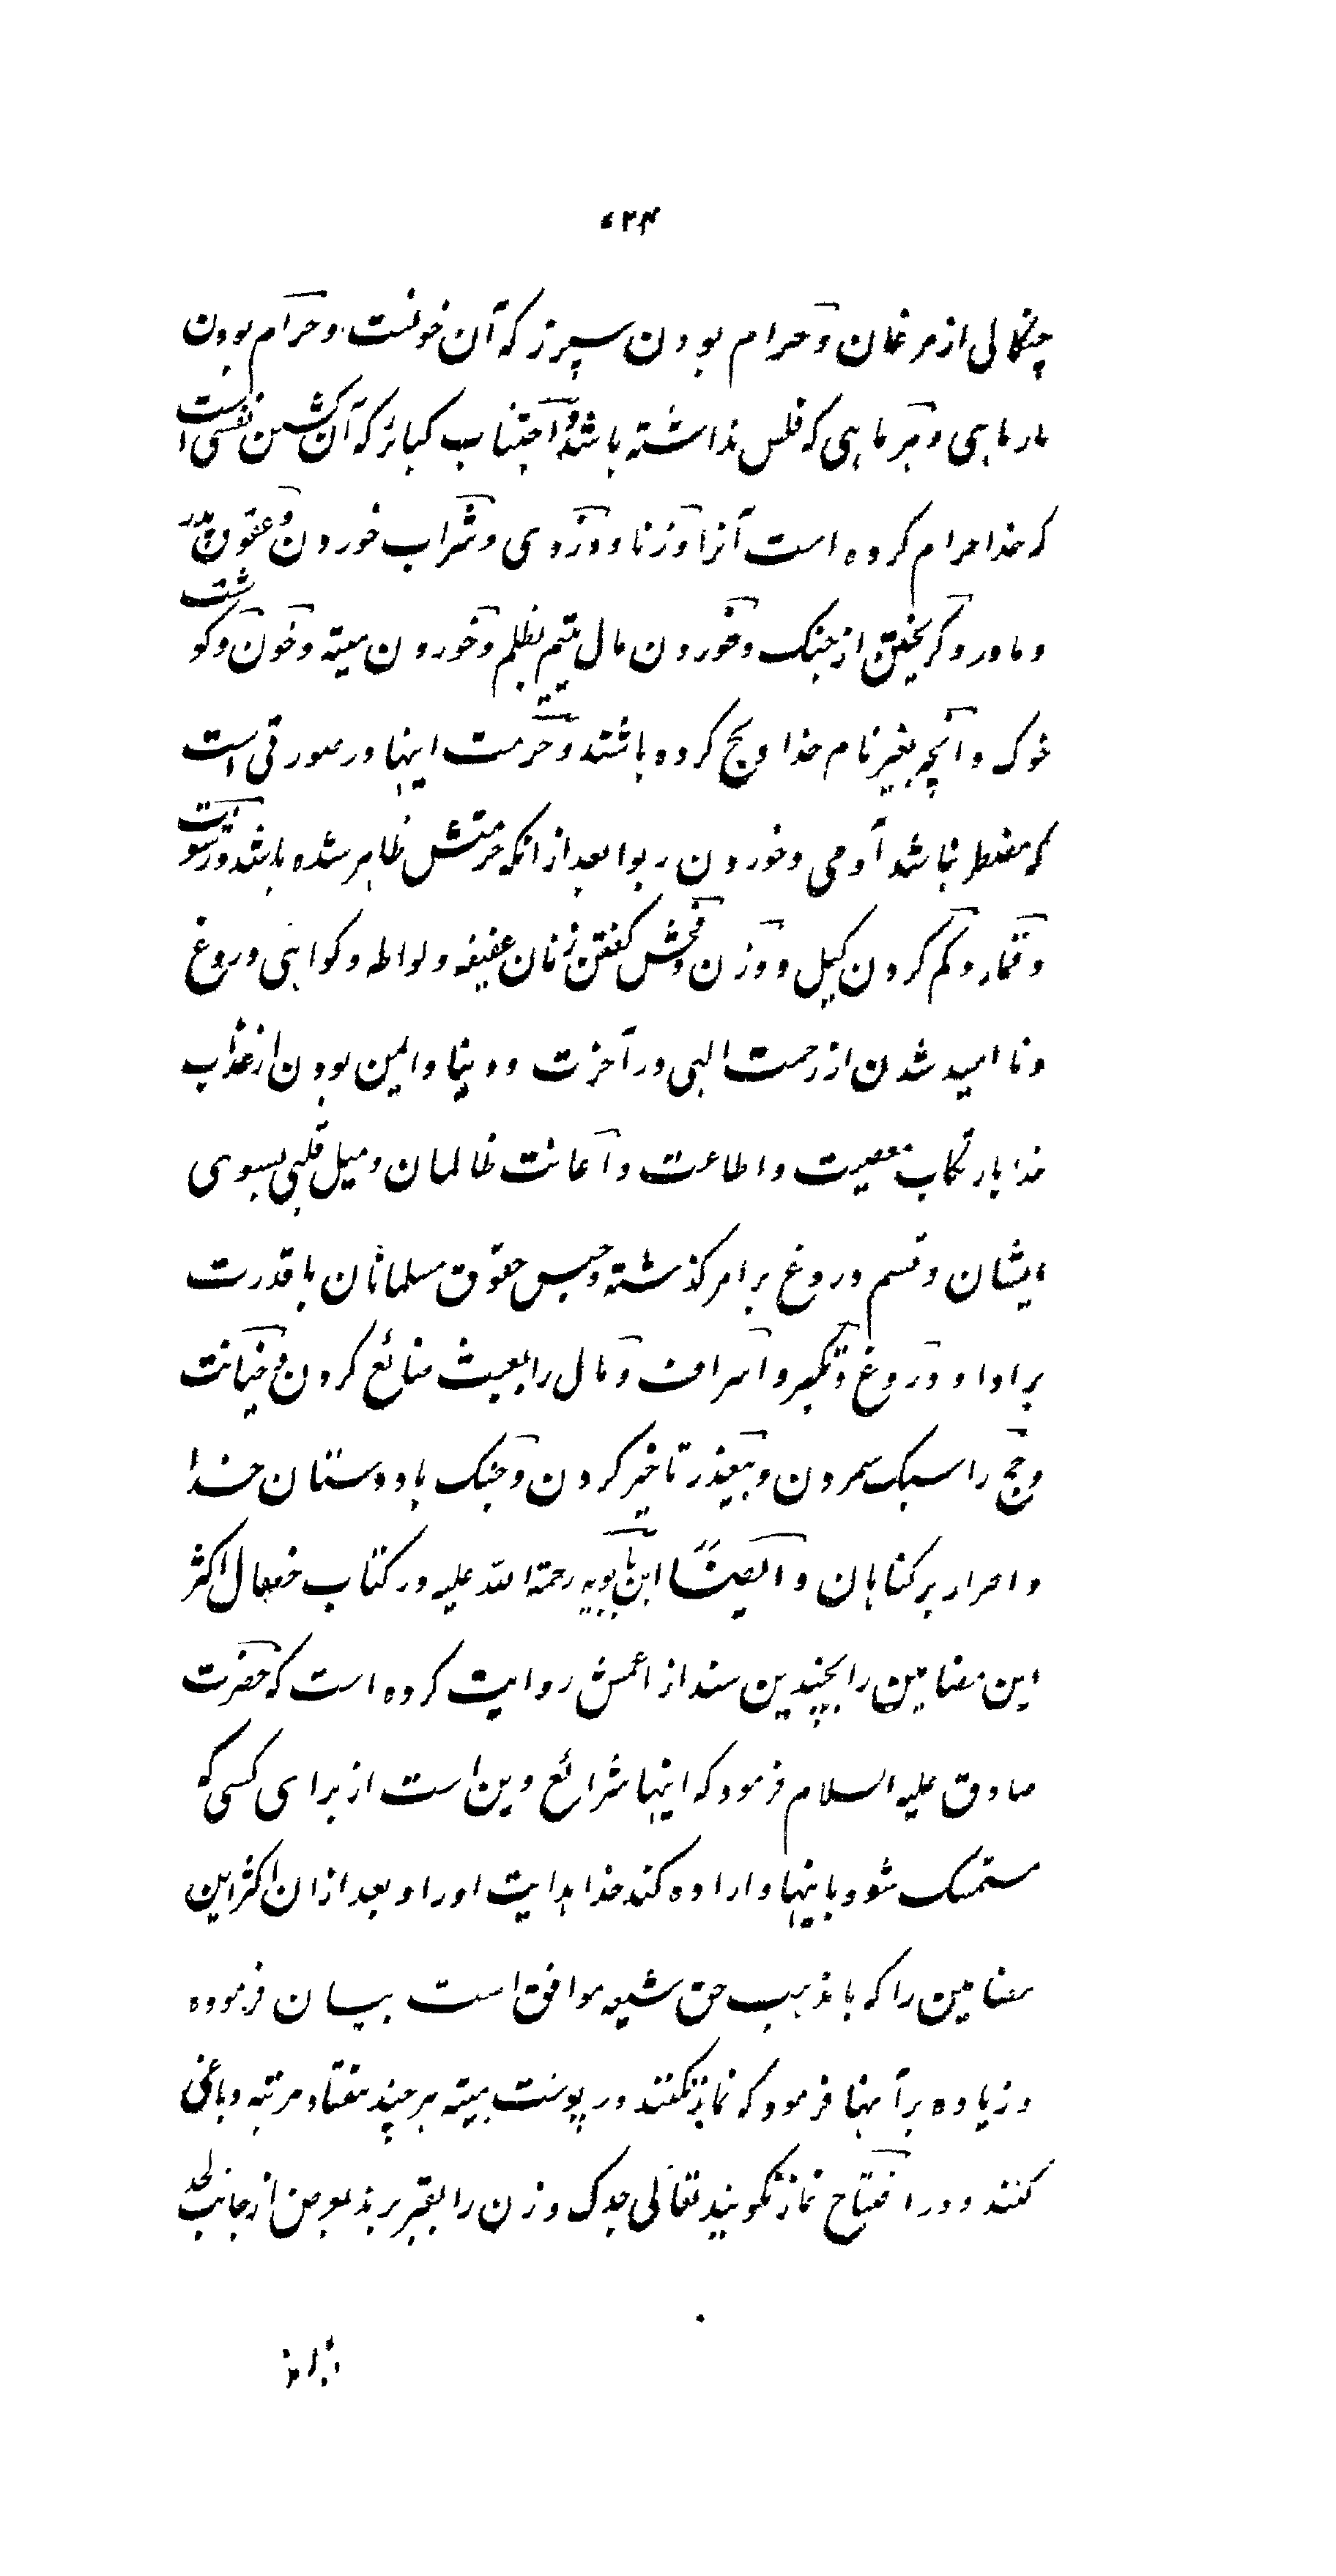 ۵۲۴
چنگالی از مرغان و حرام بودن سپرز که آن خونست و حرام بودن
مار ماهی و هر ماهی که فلس نداشته باشد و اجتناب کبائر که آن کشتن نفسی است
که خدا حرام کرده است آنرا و زنا و دزدی و شراب خوردن و عقوق پدر
و مادر و گریختن از جنک و خوردن مال یتیم بظلم و خوردن میته و خون و گوشت
خوک و آنچه بغیر نام خدا ذبح کرده باشند و حرمت اینها در صورتی است
که مضطر نباشد آدمی و خوردن ربوا بعد از انکه حرمتش ظاهر شده باشد و رشوت
و قمار و کم کردن کیل و وزن و فحش گفتن زنان عفیفه و لواطه و گواهی دروغ
و نا امید شدن از رحمت الهی در آخرت و دنیا و ایمن بودن از عذاب
خدا بارتکاب معصیت و اطاعت و اعانت ظالمان و میل قلبی بسوی
ایشان و قسم دروغ بر امر گذشته و حبس حقوق مسلمانان با قدرت
بر ادا و دروغ و تکبر و اسراف و مال را بعبث ضائع کردن و خیانت
و حج را سبک سمردن و بیعذر تاخیر کردن و جنک با دوستان خدا
و اصرار بر گناهان و ایضًا ابن بابویه رحمة الله علیه در کتاب خصال اکثر
این مضامین را بچندین سند از اعمش روایت کرده است که حضرت
صادق علیه السلام فرمود که اینها شرائع دین است از برای کسی که
متمسک شود باینها و اراده کند خدا هدایت او را و بعد ازان اکثر این
مضامین را که با مذهب حق شیعه موافق است بیان فرموده
و زیاده بر آنها فرمود که نماز نکنند در پوست میته هر چند هفتاد مرتبه دباغی
کنند و در افتتاح نماز نگویند تعالی جدک و زن را بقبر برند بعرض از جانب لحد